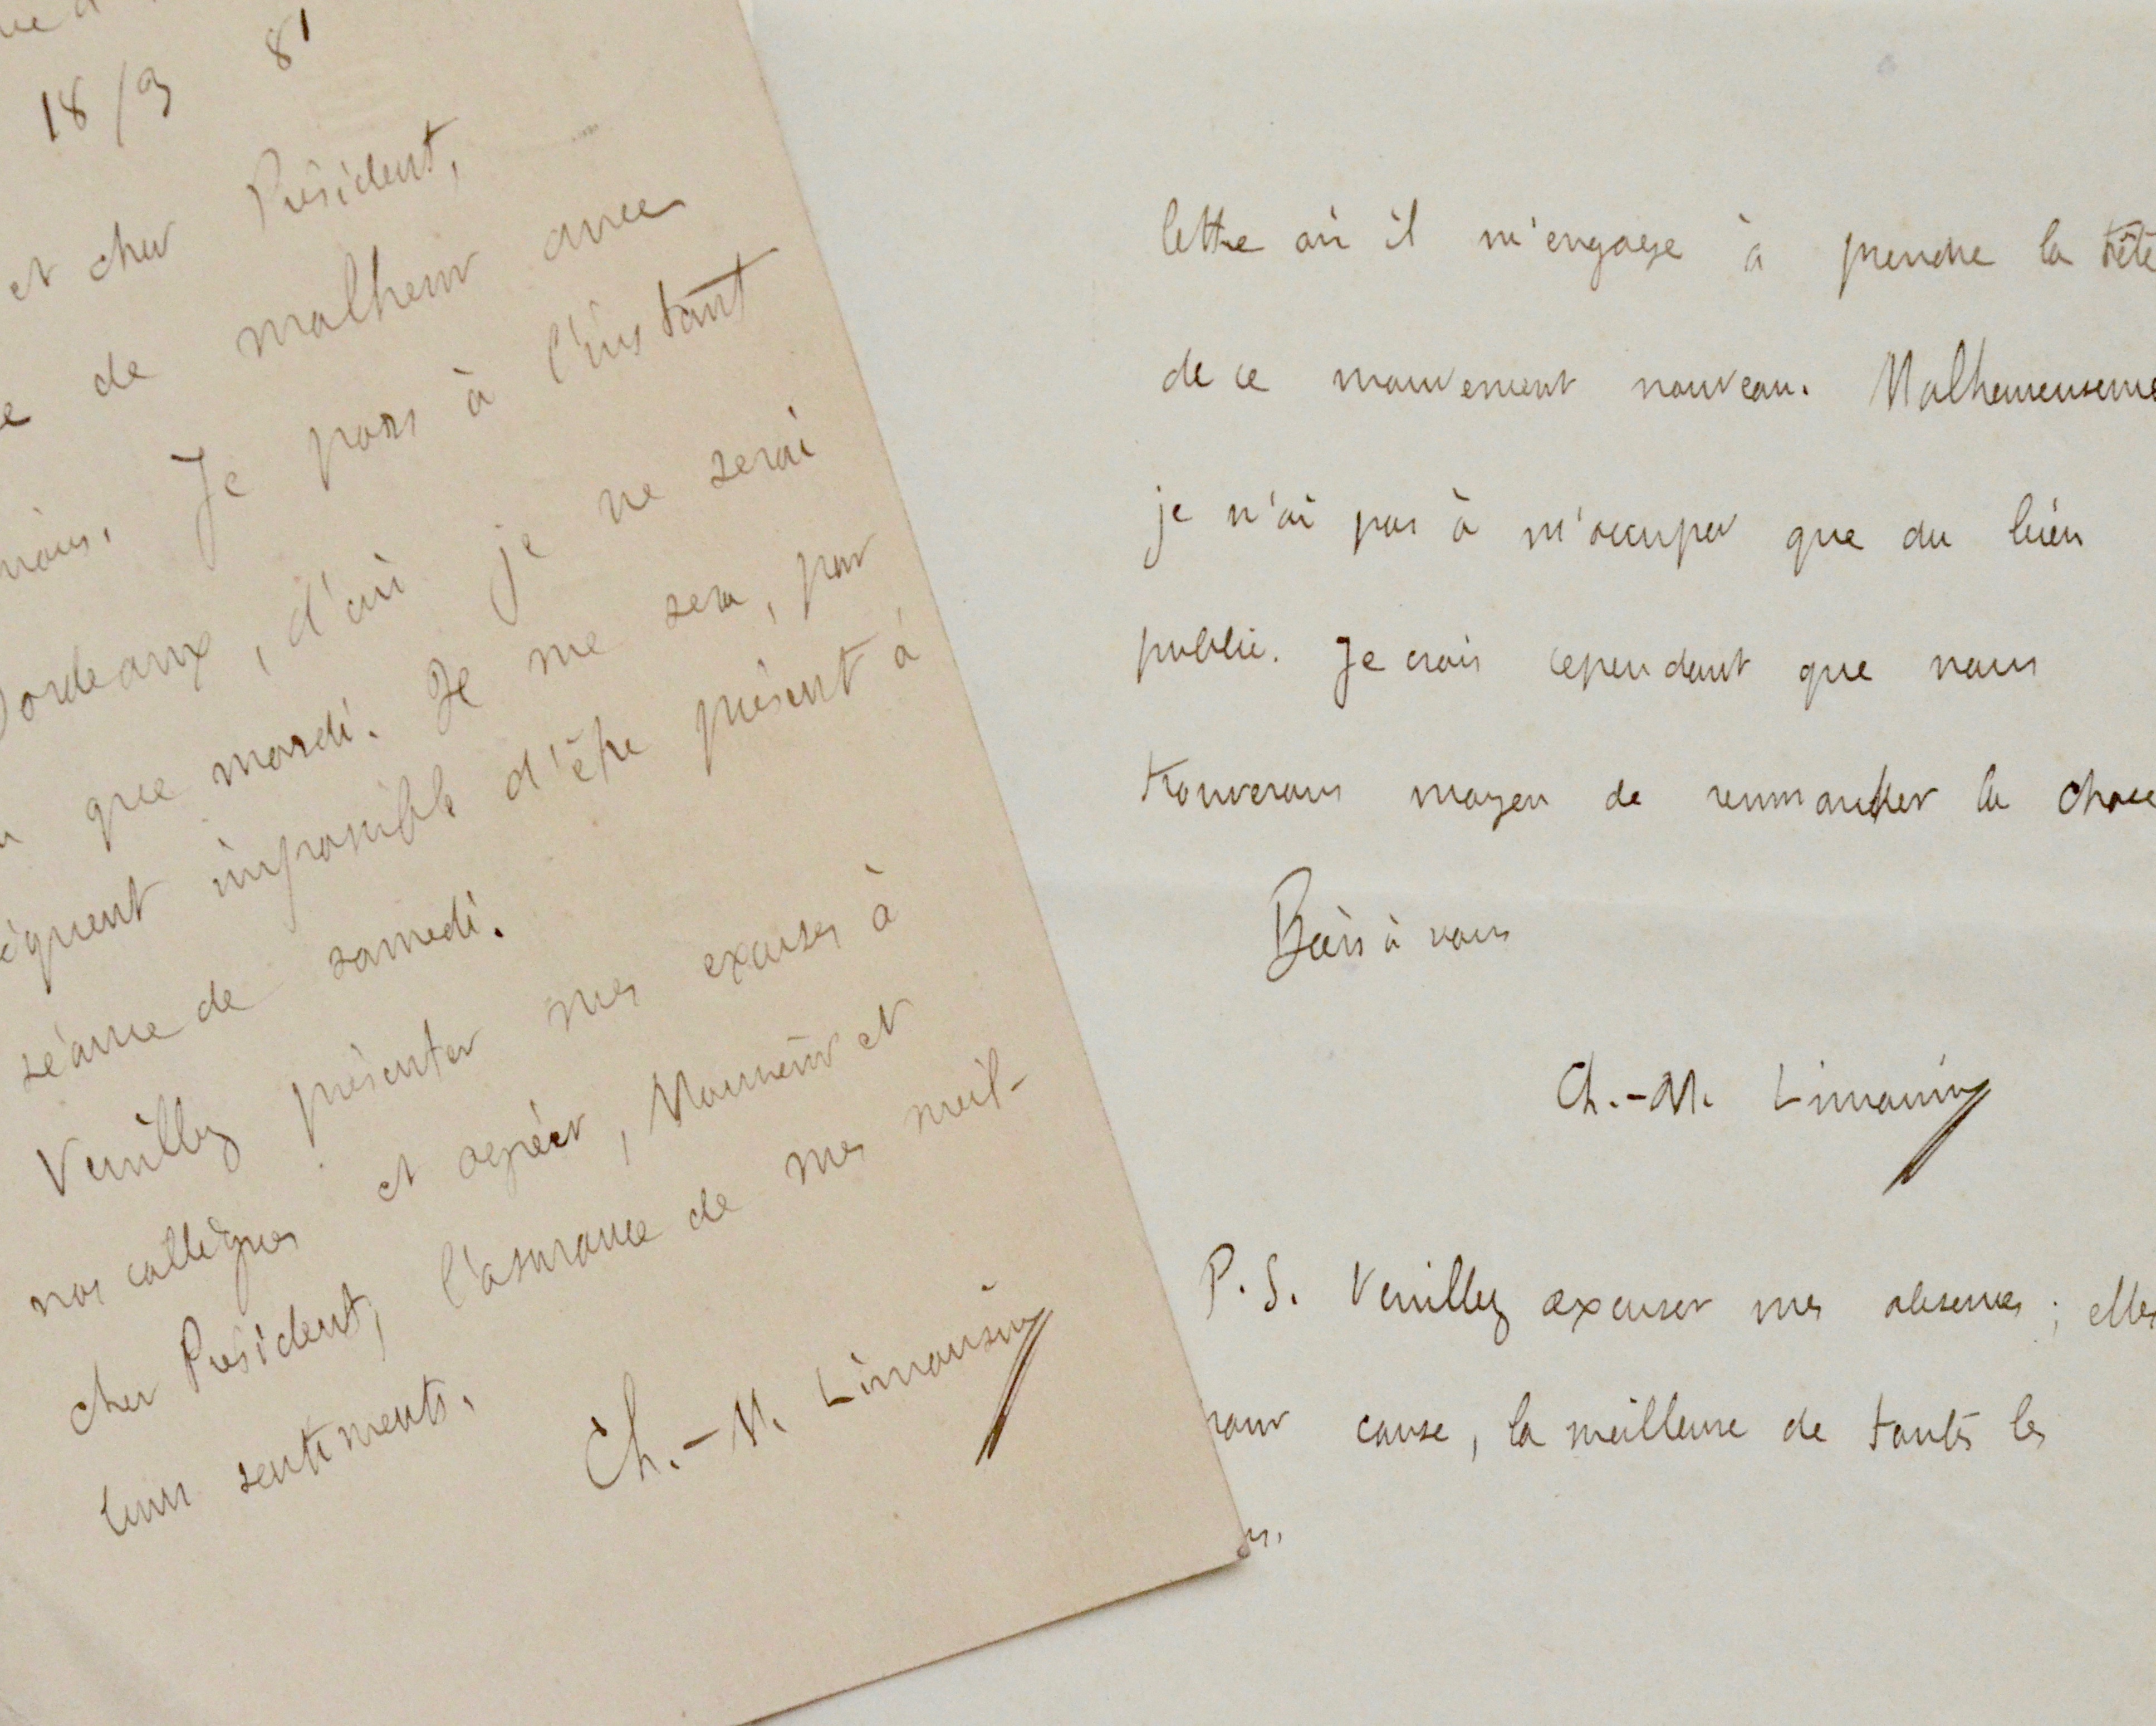 18/9 81
et cher Président,
de malheur avec
Je pars à l'instant
Bordeaux, d'où je ne serai
que mardi. Il me sera, par
séquent impossible d'être présent à
séance de samedi.
Veuillez présenter mes excuses à
nos collègues et agréer, Monsieur et
cher Président, l'assurance de mes meil-
leurs sentiments.
Ch.-M. Limousin
lettre où il m'engage à prendre la tête
de ce mouvement nouveau. Malheureuseme
je n'ai pas à m'occuper que du bien
public. Je crois cependant que nous
trouverons moyen de remmancher la chose
Bien à vous
Ch.-M. Limousin
P.S. Veuillez excuser mes absences ; elles
pour cause, la meilleure de toutes les